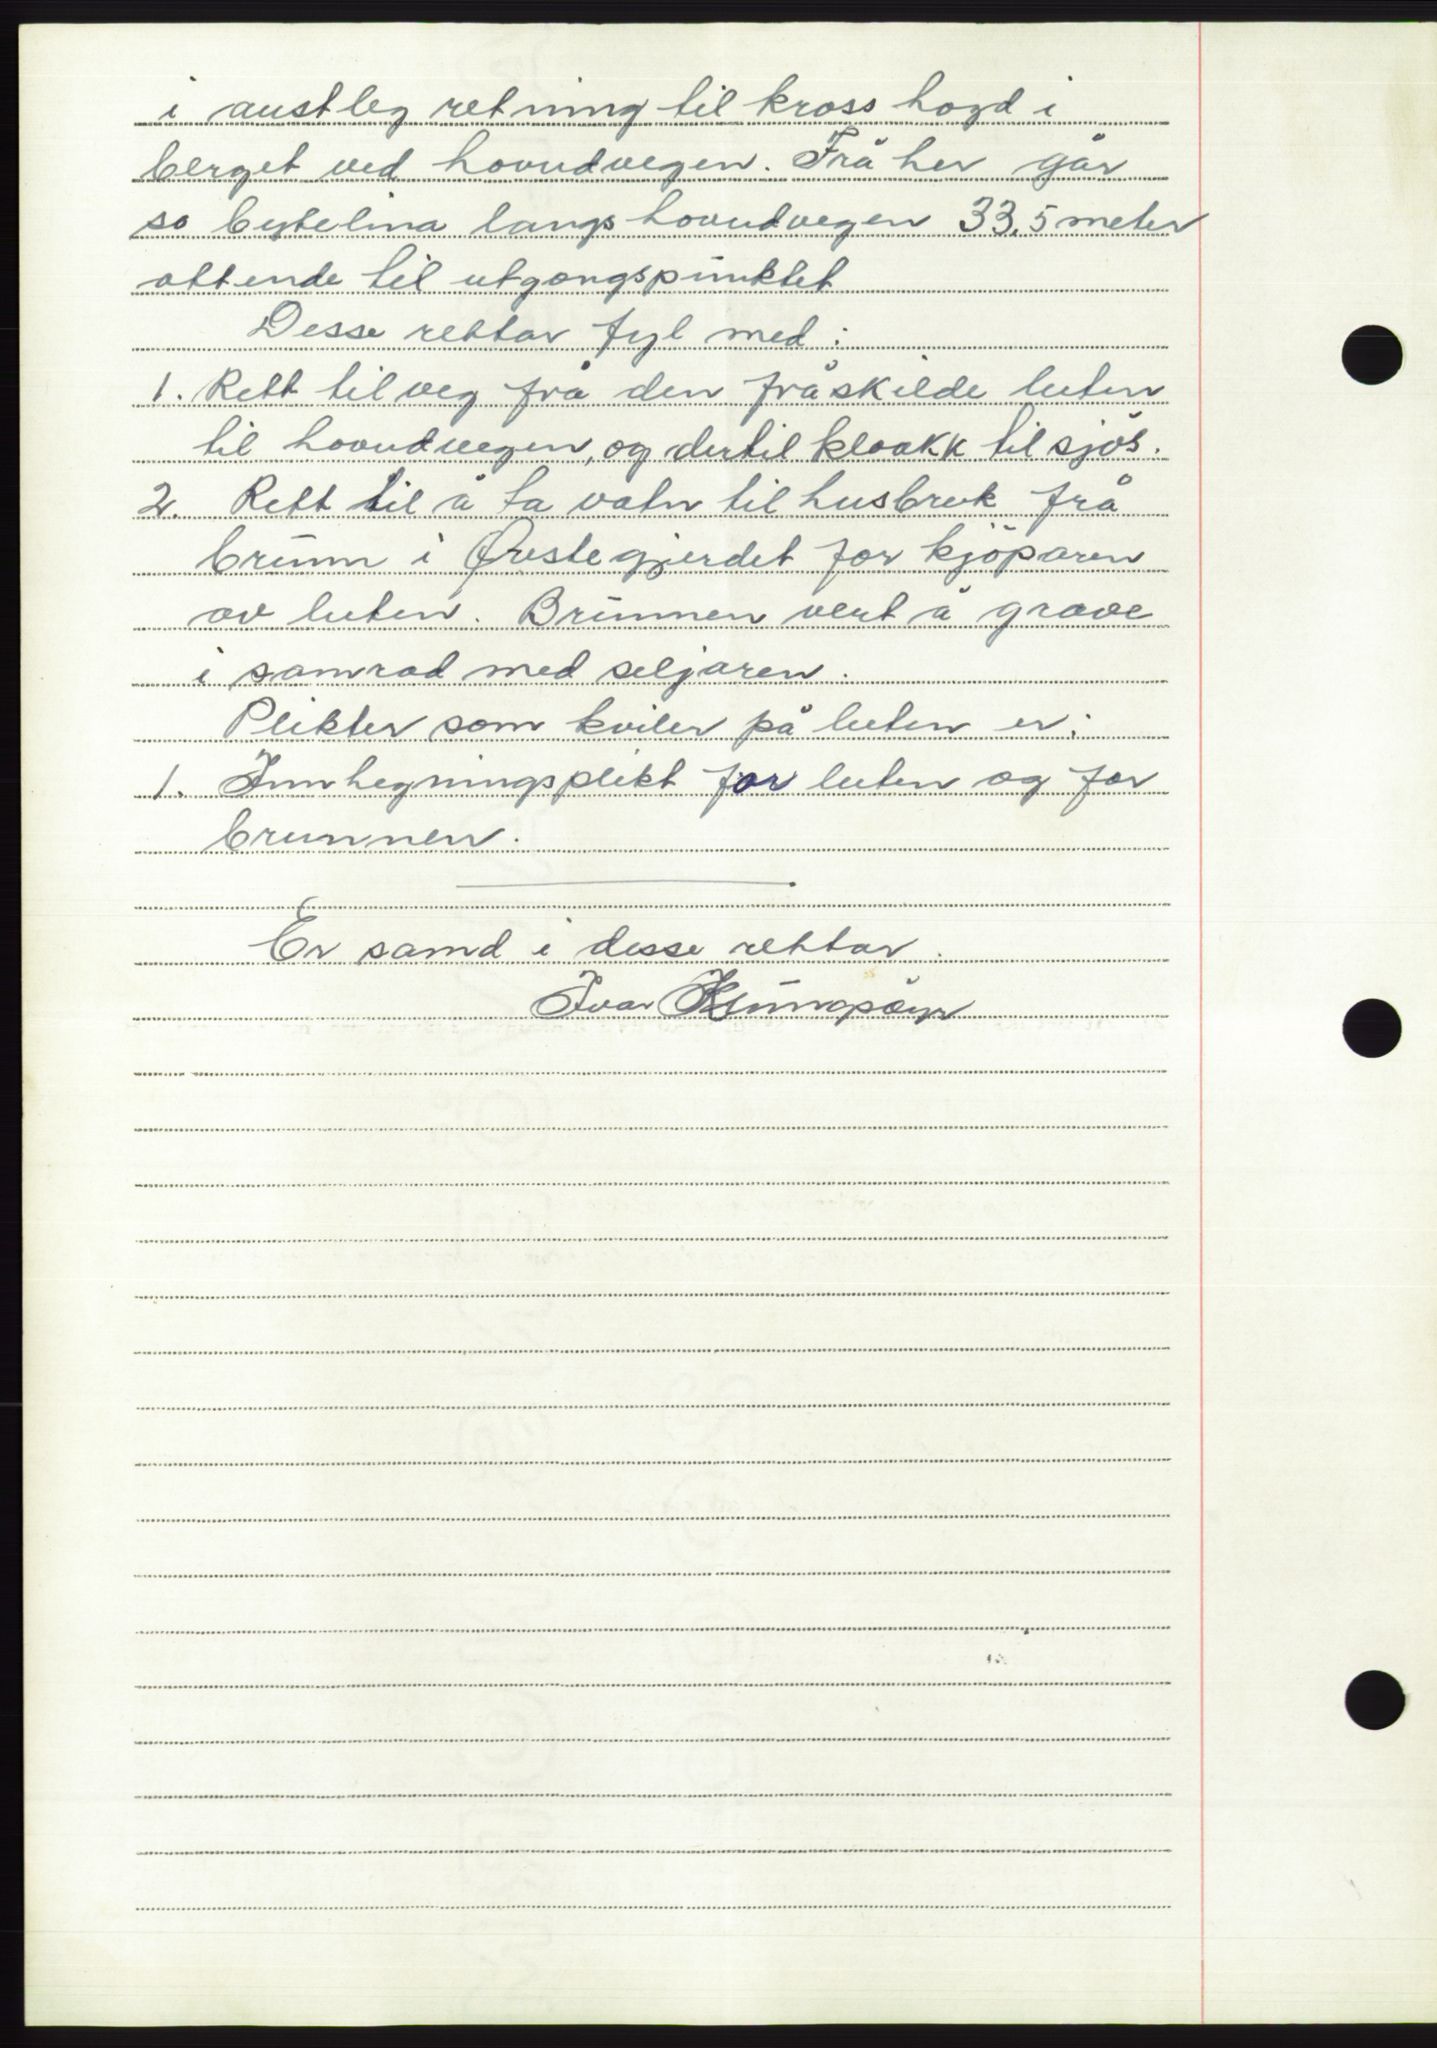 i austleg retning til kross hogd i
berget ved hovudvegen. Frå her går
so bytelina langs hovudvegen 33,5 meter
attende til utgangspunktet
Desse rettar fyl med:
1. Rett til veg frå den fråskilde luten
til hovudvegen, og dertil kloakk til sjøs.
2. Rett til å ta vatn til husbruk frå
brunn i Ørstegjerdet for kjöparen
av luten. Brunnen vert å grave
i samrad med seljaren.
Plikter som kviler på luten er:
1. Innhegningsplikt for luten og for
brunnen.
Er samd i desse rettar.
Ivar